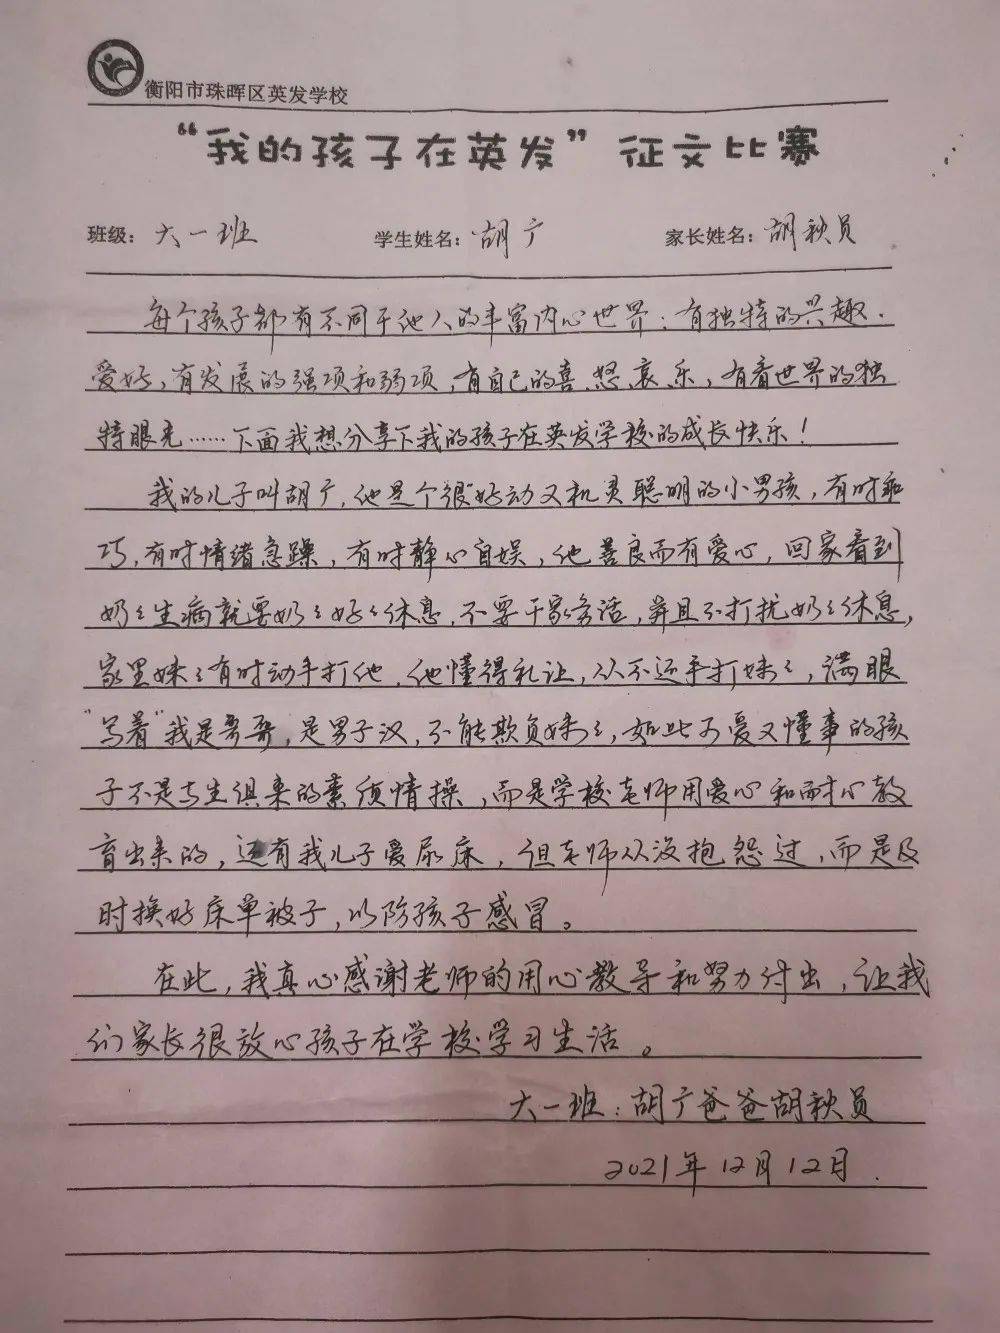 衡阳市珠晖区英发学校
“我的孩子在英发”征文比赛
班级：大一班 学生姓名：胡广 家长姓名：胡秋员
每个孩子都有不同于他人的丰富内心世界：有独特的兴趣、
爱好，有发展的强项和弱项，有自己的喜、怒、哀、乐，有看世界的独
特眼光……下面我想分享下我的孩子在英发学校的成长快乐！
我的儿子叫胡广，他是个很“好动又机灵聪明的小男孩，有时乖
巧，有时情绪急躁，有时静心自娱，他善良而有爱心，回家看到
奶々生病就要奶々好々休息，不要干家务活，并且不打扰奶々休息，
家里妹々有时动手打他，他懂得礼让，从不还手打妹々，满眼
“写着”我是哥哥，是男子汉，不能欺负妹々，如此可爱又懂事的孩
子不是与生俱来的素质情操，而是学校老师用爱心和耐心教
育出来的，还有我儿子爱尿床，但老师从没抱怨过，而是及
时换好床单被子，以防孩子感冒。
在此，我真心感谢老师的用心教导和努力付出，让我
们家长很放心孩子在学校学习生活。
大一班：胡广爸爸胡秋员
2021年12月12日.